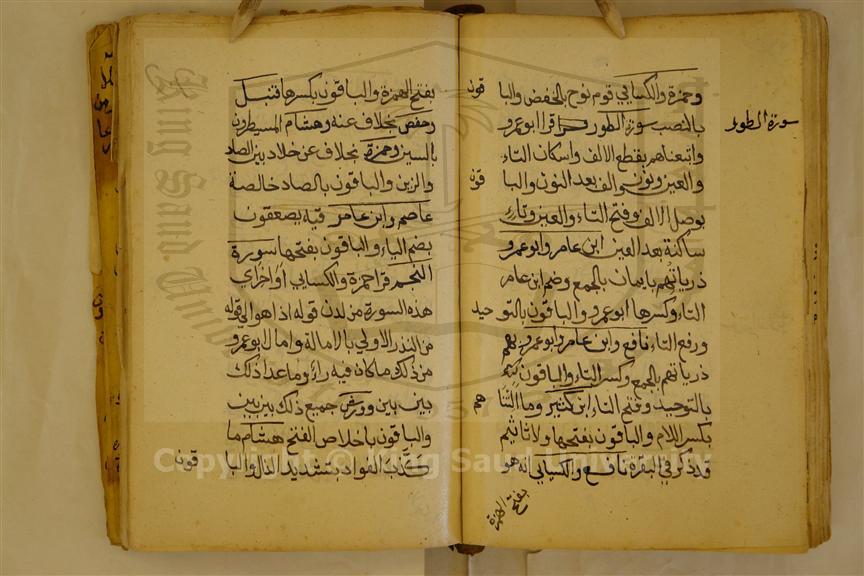 وحمزة والكسايي قوم نوح بالخفض والبا قون
بالنصب سورة الطور قرا ابوعمرو
سورة الطور
واتبعناهم بقطع الالف واسكان التاء
والعين ونون والف بعد النون والبا قون
بوصل الالف وفتح التاء والعين وتاء
ساكنة بعد العين ابن عامر وابوعمرو
ذرياتهم بايمان بالجمع وضم ابن عامر
التاء وكسرها ابوعمرو والباقون بالتوحيد
ورفع التاء نافع وابن عامر وابوعمرو بهم
ذرياتهم بالجمع وكسر التاء والباقون
بالتوحيد وفتح التاء ابن كثير وما التنا هم
بكسر اللام والباقون بفتحها ولا تاثيم
قد ذكر في البقرة نافع والكسايي انه هو
بفتح الهمزة
بفتح الهمزة والباقون بكسرها قنبل
وحفص بخلاف عنه وهشام المسيطرون
بالسين وحمزة بخلاف عن خلاد بين الصاد
والزين والباقون بالصاد خالصة
عاصم وابن عامر فيه يصعقون
بضم الياء والباقون بفتحها سورة
النجم قرا حمزة والكسايي اواخر اي
هذه السورة من لدن قوله اذا هوا الي قوله
من النذر الاولي بالامالة وامال ابوعمرو
من ذلك ما كان فيه راء وما عدا ذلك
بين بين وورش جميع ذلك بين بين
والباقون باخلاص الفتح هشام ما
كذب الفواد بتشديد الذال والبا قون
Copyright © King Saud University
King Saud University
1957